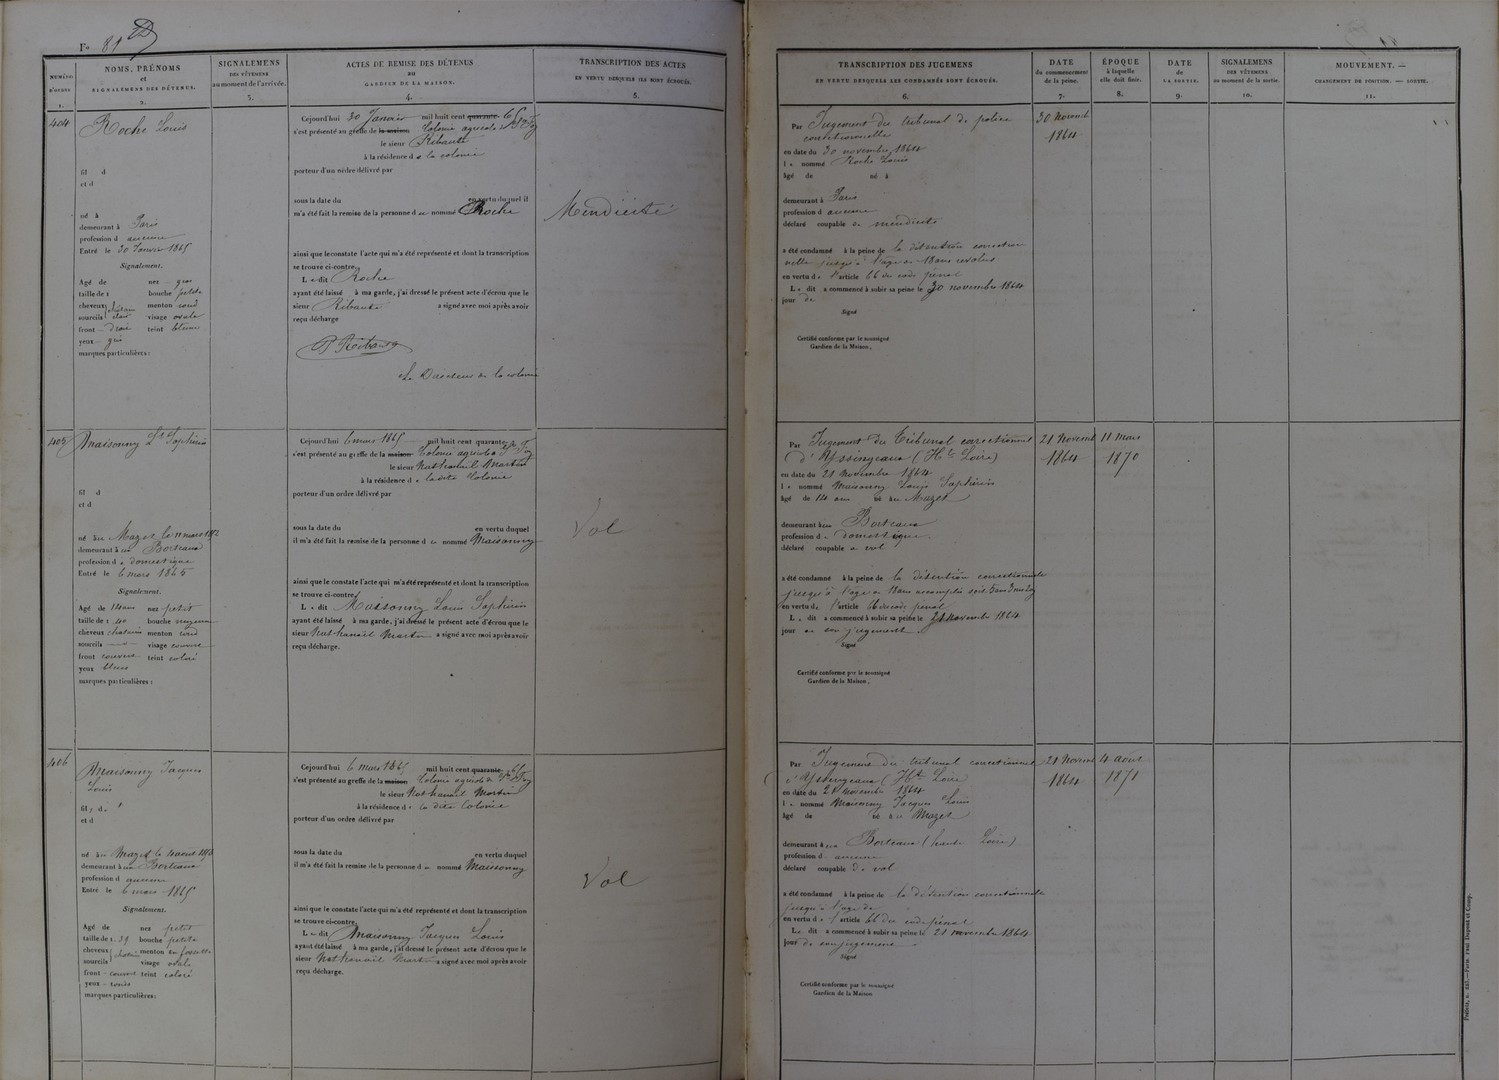 Fo 81
NUMÉRO D'ORDRE 1.
NOMS, PRÉNOMS et SIGNALEMENS DES DÉTENUS. 2.
SIGNALEMENS DES VÊTEMENS au moment de l'arrivée. 3.
ACTES DE REMISE DES DÉTENUS au GARDIEN DE LA MAISON. 4.
TRANSCRIPTION DES ACTES EN VERTU DESQUELS ILS SONT ÉCROUÉS. 5.
TRANSCRIPTION DES JUGEMENS EN VERTU DESQUELS LES CONDAMNÉS SONT ÉCROUÉS. 6.
DATE du commencement de la peine. 7.
ÉPOQUE à laquelle elle doit finir. 8.
DATE de LA SORTIE. 9.
SIGNALEMENS DES VÊTEMENS au moment de la sortie. 10.
MOUVEMENT. — CHANGEMENT DE POSITION. — SORTIE. 11.
404
Roche Louis
fil d
et d
né à
demeurant à Paris
profession d aucune
Entré le 30 Janvier 1865
Signalement.
Agé de nez gros
taille de 1 bouche petite
cheveux châtain menton rond
sourcils clair visage ovale
front droit teint blême
yeux gris
marques particulières :
Cejourd'hui 30 Janvier mil huit cent quarante 65
s'est présenté au greffe de la maison Colonie agricole de Ste Foy
le sieur Ribaute
à la résidence d e la colonie
porteur d'un ordre délivré par
sous la date du en vertu duquel il
m'a été fait la remise de la personne d u nommé Roche
ainsi que le constate l'acte qui m'a été représenté et dont la transcription
se trouve ci-contre.
L e dit Roche
ayant été laissé à ma garde, j'ai dressé le présent acte d'écrou que le
sieur Ribaute a signé avec moi après avoir
reçu décharge
Le Directeur de la colonie
Mendicité
Par Jugement du tribunal de police
correctionnelle
en date du 30 novembre 1864
l e nommé Roche Louis
âgé de né à
demeurant à Paris
profession d aucune
déclaré coupable de mendicité
a été condamné à la peine de la détention correction
nelle jusqu'à l'âge de 18 ans révolus
en vertu de l'article 66 du code pénal
L e dit a commencé à subir sa peine le 30 novembre 1864
jour de
Signé
Certifié conforme par le soussigné
Gardien de la Maison,
30 Novembre
1864
405
Maisonny Ls Saphirin
fil d
et d
né au Mazet le 11 mars 1852
demeurant à Borteaux
profession de domestique
Entré le 6 mars 1865
Signalement.
Agé de 14 ans nez petit
taille de 1 40 bouche moyenne
cheveux chatain menton rond
sourcils visage couvert
front couvert teint coloré
yeux bleus
marques particulières :
Cejourd'hui 6 mars 1865 mil huit cent quarante
s'est présenté au greffe de la maison Colonie agricole de Ste Foy
le sieur Nathanaël Martin
à la résidence d e ladite Colonie
porteur d'un ordre délivré par
sous la date du en vertu duquel
il m'a été fait la remise de la personne d u nommé Maisonny
ainsi que le constate l'acte qui m'a été représenté et dont la transcription
se trouve ci-contre.
L e dit Maisonny Louis Saphirin
ayant été laissé à ma garde, j'ai dressé le présent acte d'écrou que le
sieur Nathanaël Martin a signé avec moi après avoir
reçu décharge.
Vol
Par Jugement du Tribunal correctionnel
d'Yssingeaux (Hte Loire)
en date du 21 Novembre 1864
l e nommé Maisonny Louis Saphirin
âgé de 14 ans né au Mazet
demeurant à Borteaux
profession de domestique.
déclaré coupable de vol
a été condamné à la peine de la détention correctionnelle
jusqu'à l'âge de 18 ans accomplis
en vertu de l'article 66 du code pénal
L e dit a commencé à subir sa peine le 21 Novembre 1864
jour de son jugement
Signé
Certifié conforme par le soussigné
Gardien de la Maison,
21 Novembre
1864
11 Mars
1870
406
Maisonny Jacques
Louis
fil s d e
et d
né au Mazet le 4 août
demeurant à Borteaux
profession d aucune
Entré le 6 mars 1865
Signalement.
Agé de nez petit
taille de 1. 39 bouche petite
cheveux chatain menton en fossette
sourcils visage ovale
front couvert teint coloré
yeux
marques particulières :
Cejourd'hui 6 Mars 1865 mil huit cent quarante 65
s'est présenté au greffe de la maison Colonie agricole de Ste Foy
le sieur Nathanaël Martin
à la résidence d e la dite Colonie
porteur d'un ordre délivré par
sous la date du en vertu duquel
il m'a été fait la remise de la personne d u nommé Maisonny
ainsi que le constate l'acte qui m'a été représenté et dont la transcription
se trouve ci-contre.
L e dit Maisonny Jacques Louis
ayant été laissé à ma garde, j'ai dressé le présent acte d'écrou que le
sieur Nathanaël Martin a signé avec moi après avoir
reçu décharge.
Vol
Par Jugement du tribunal correctionnel
d'Yssingeaux (Hte Loire)
en date du 21 Novembre 1864
l e nommé Maisonny Jacques Louis
âgé de né au Mazet
demeurant à Borteaux (haute Loire)
profession d aucune
déclaré coupable de vol
a été condamné à la peine de la détention correctionnelle
jusqu'à l'âge de
en vertu de l'article 66 du code pénal
L e dit a commencé à subir sa peine le 21 novembre 1864
jour de son jugement
Signé
Certifié conforme par le soussigné
Gardien de la Maison
21 Novem
1864
4 aout
1871